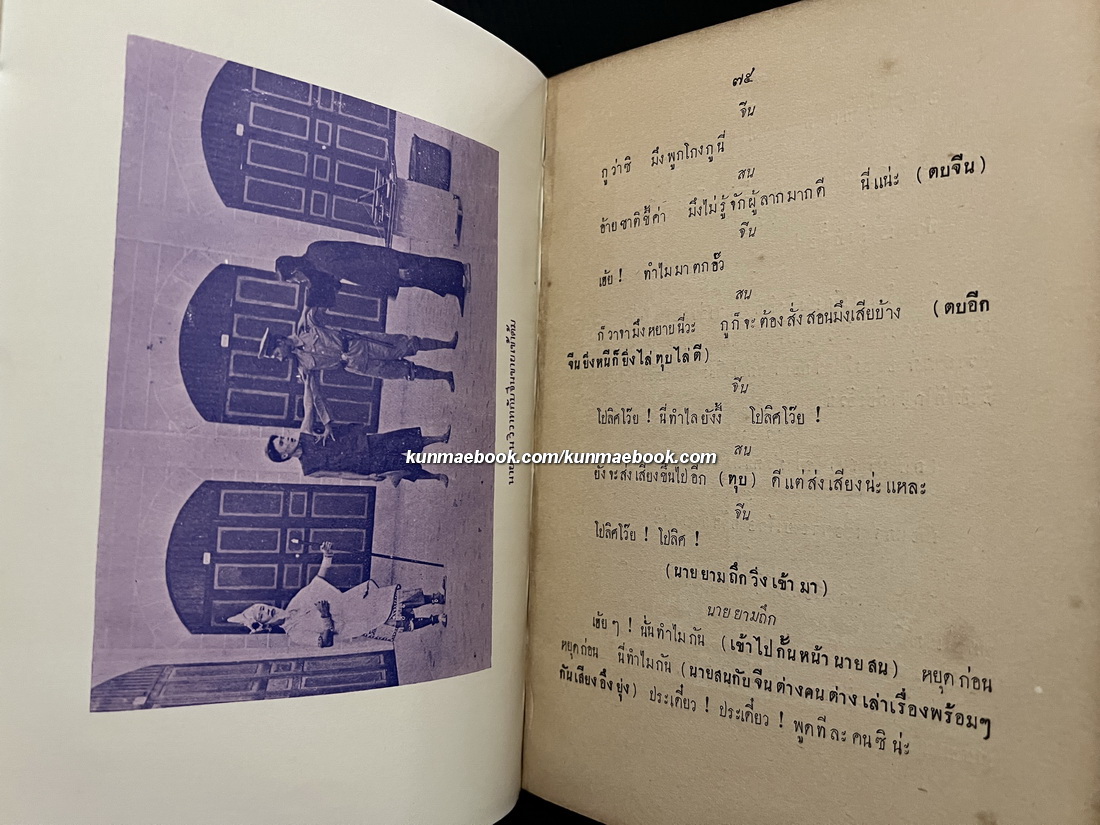 ๗๕
จีน
กูว่าซิ มึงพูกโกงกูนี่
สน
อ้ายชาติขี้ค่า มึงไม่รู้จักผู้ลากมากดี นี่แน่ะ (ตบจีน)
จีน
เฮ้ย ! ทำไมมาตกอั๊ว
สน
ก็วาจามึงหยายนี่วะ กูก็จะต้องสั่งสอนมึงเสียบ้าง (ตบอีก
จีนยิ่งหนีก็ยิ่งไล่ทุบไล่ตี)
จีน
โปลิศโว๊ย ! นี่ทำไลยังงี้ โปลิศโว๊ย !
สน
ยังจะส่งเสียงขึ้นไปอีก (ทุบ) ดีแต่ส่งเสียงน่ะแหละ
จีน
โปลิศโว๊ย ! โปลิศ !
(นายยามถึกวิ่งเข้ามา)
นายยามถึก
เฮ้ย ๆ ! นั่นทำไมกัน (เข้าไปกั้นหน้านายสน) หยุดก่อน
หยุดก่อน นี่ทำไมกัน (นายสนกับจีนต่างคนต่างเล่าเรื่องพร้อมๆ
กันเสียงอึงยุ่ง) ประเดี๋ยว ! ประเดี๋ยว ! พูดทีละคนซิน่ะ
kunmaebook.com/kunmaebook.com